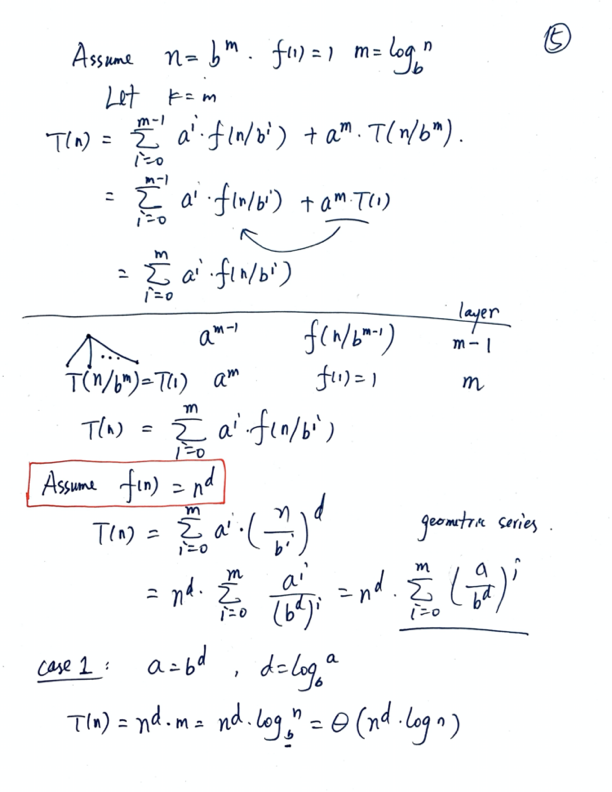 ⑤
Assume n = b^m . f(1) = 1 m = log_b^n
Let k = m
T(n) = Σ_{i=0}^{m-1} a^i · f(n/b^i) + a^m · T(n/b^m).
= Σ_{i=0}^{m-1} a^i · f(n/b^i) + a^m · T(1)
= Σ_{i=0}^{m} a^i · f(n/b^i)
layer
a^{m-1} f(n/b^{m-1}) m-1
...
T(n/b^m) = T(1) a^m f(1) = 1 m
T(n) = Σ_{i=0}^{m} a^i · f(n/b^i)
Assume f(n) = n^d
T(n) = Σ_{i=0}^{m} a^i · (n/b^i)^d geometric series .
= n^d · Σ_{i=0}^{m} a^i/(b^d)^i = n^d · Σ_{i=0}^{m} (a/b^d)^i
case 1 : a = b^d , d = log_b^a
T(n) = n^d · m = n^d · log_b^n = Θ(n^d · log n)